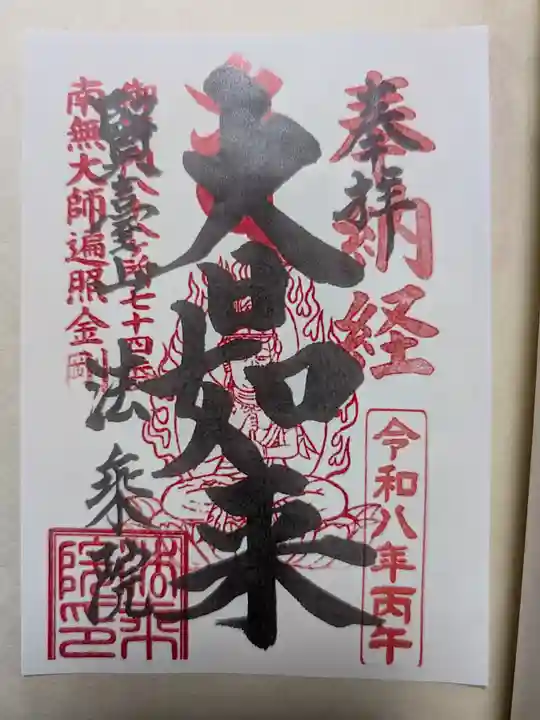 奉拝
奉納経
令和八年丙午
大日如来
御府内八十八ヶ所七十四番
南無大師遍照金剛
賢臺山 法乗院